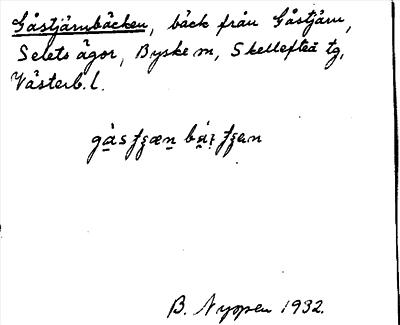 Gåstjärnbäcken, bäck från Gåstjärn,
Selets ägor, Byske sn, Skellefteå tg,
Västerb. l.
B. Nyppen 1932.